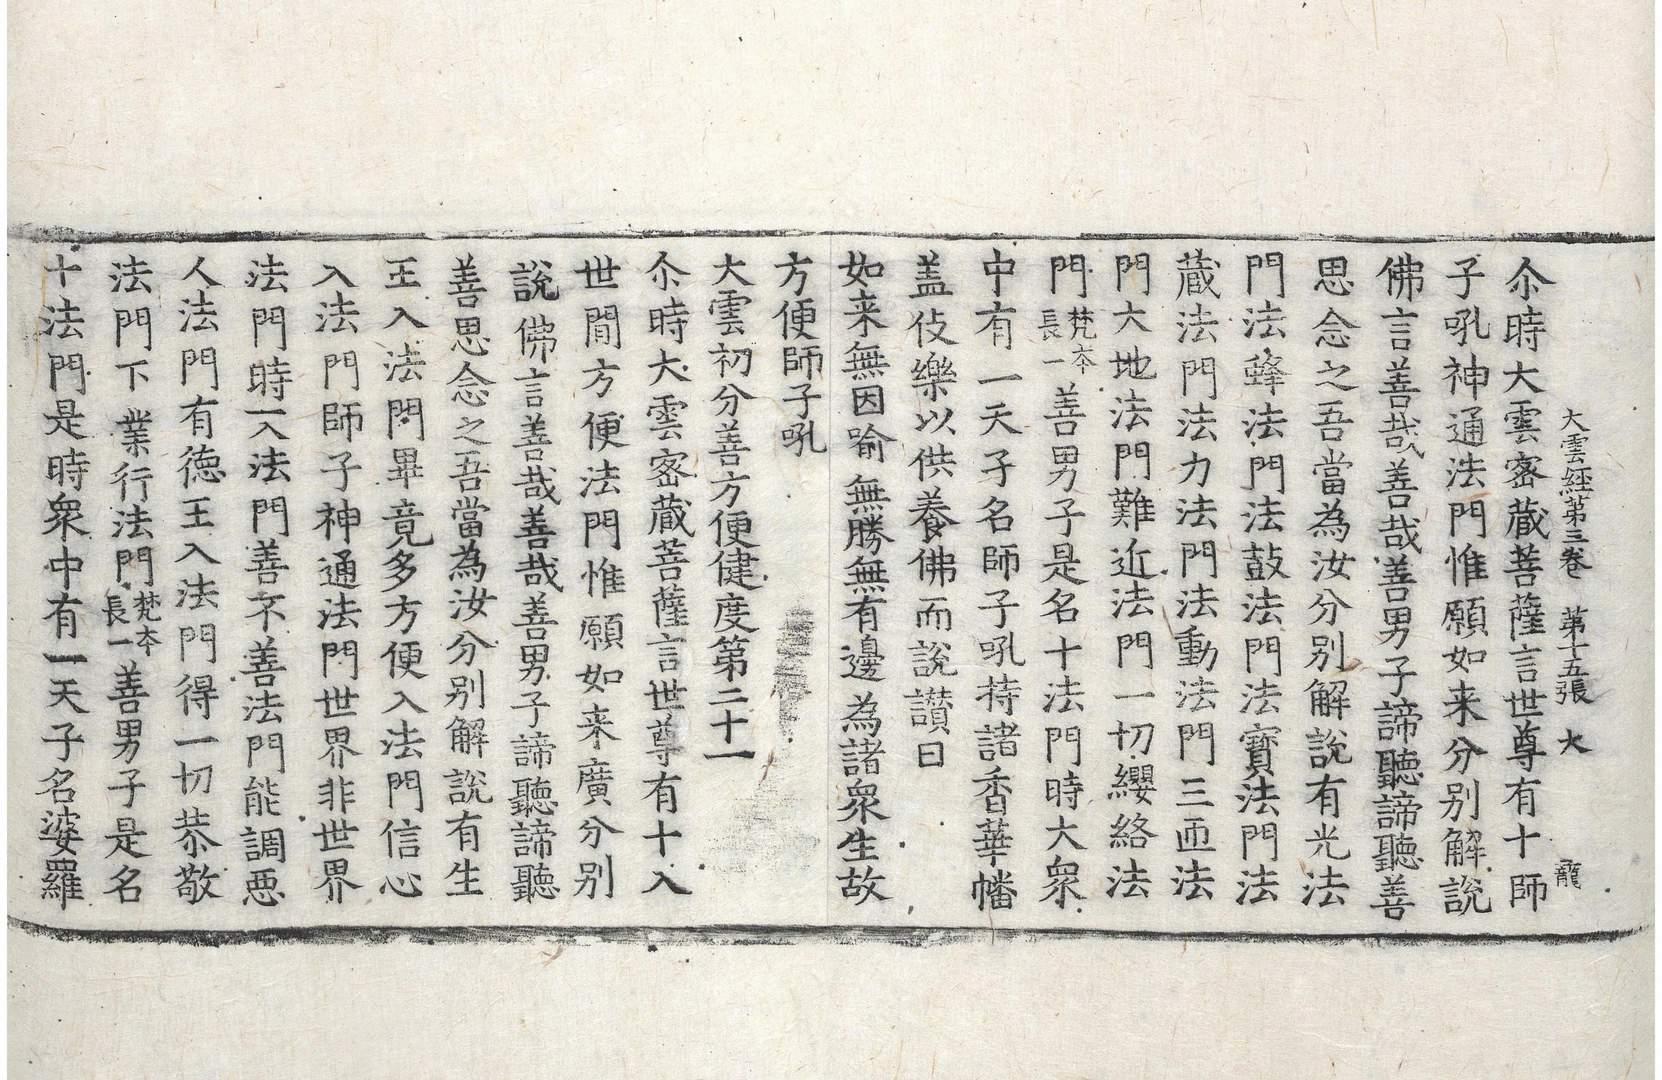 大雲経第三卷 第十五張 大 龍
尒時大雲密蔵菩薩言世尊有十師
子吼神通法門惟願如来分別解說
佛言善哉善哉善男子諦聽諦聽善
思念之吾當為汝分別解說有光法
門法蜂法門法鼓法門法寶法門法
蔵法門法力法門法動法門三匝法
門大地法門難近法門一切纓絡法
門梵本長一善男子是名十法門時大衆
中有一天子名師子吼持諸香華幡
盖伎樂以供養佛而說讃曰
如来無因喻 無勝無有邊 為諸衆生故
方便師子吼
大雲初分善方便健度第二十一
尒時大雲密蔵菩薩言世尊有十入
世間方便法門惟願如来廣分別
說佛言善哉善哉善男子諦聽諦聽
善思念之吾當為汝分別解說有生
王入法門畢竟多方便入法門信心
入法門師子神通法門世界非世界
法門時入法門善不善法門能調惡
人法門有德王入法門得一切恭敬
法門下業行法門梵本長一善男子是名
十法門是時衆中有一天子名婆羅